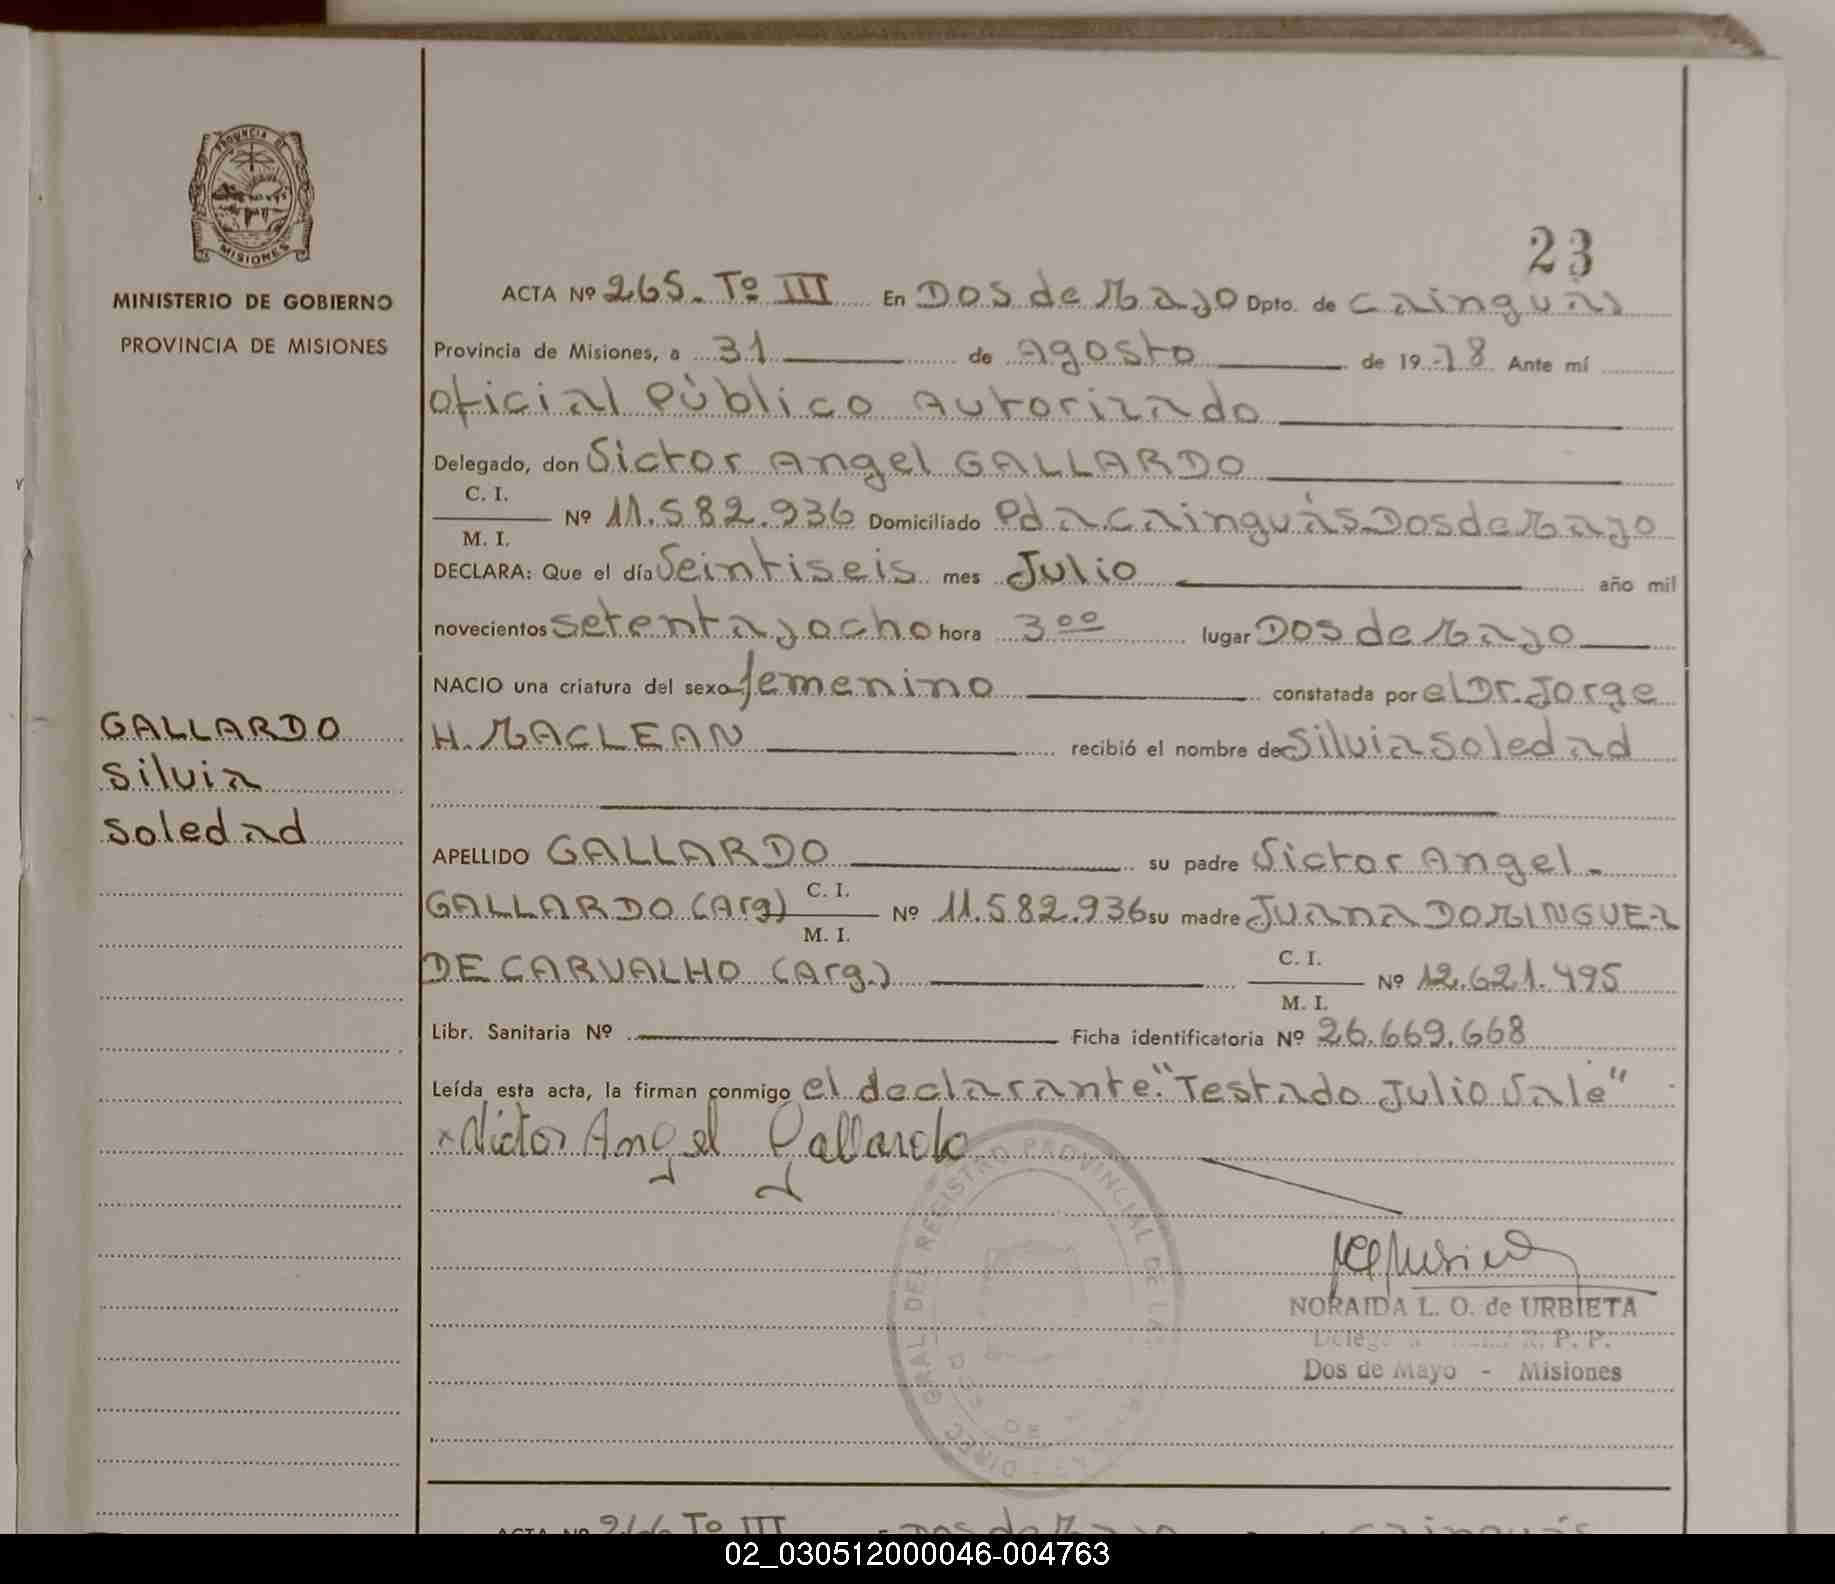 PROVINCIA DE
MISIONES
MINISTERIO DE GOBIERNO
PROVINCIA DE MISIONES
GALLARDO
Silvia
Soledad
23
ACTA Nº 265. Tº III En Dos de Mayo Dpto. de Cainguás
Provincia de Misiones, a 31 de Agosto de 19 78 Ante mí
Oficial Público Autorizado
Delegado, don Victor Angel GALLARDO
C. I.
Nº 11.582.936 Domiciliado Pda Cainguás Dos de Mayo
M. I.
DECLARA: Que el día Veintiseis mes Julio año mil
novecientos setenta y ocho hora 3 00 lugar Dos de Mayo
NACIO una criatura del sexo femenino constatada por el Dr. Jorge
H. MACLEAN recibió el nombre de Silvia Soledad
APELLIDO GALLARDO su padre Victor Angel -
GALLARDO (Arg) C. I. Nº 11.582.936 su madre Juana DOMINGUEZ
M. I.
DE CARVALHO (Arg.) C. I. Nº 12.621.495
M. I.
Libr. Sanitaria Nº Ficha identificatoria Nº 26.669.668
Leída esta acta, la firman conmigo el declarante. "Testado Julio Vale"
x Victor Angel Gallardo
DIREC. GRAL. DEL REGISTRO PROVINCIAL DE LAS
NORAIDA L. O. de URBIETA
R. P. P.
Dos de Mayo - Misiones
ACTA Nº 266 Tº III En Dos de Mayo Cainguás
02_030512000046-004763